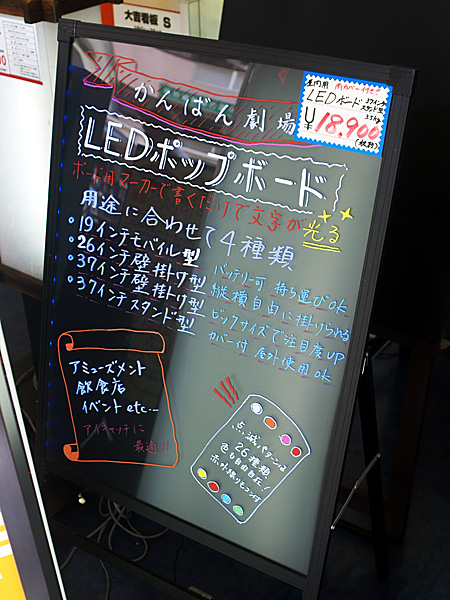 大吉看板 S
屋内用 雨カバー付き
LEDボード 37インチ
スタンド型
¥18,900
(税抜)
かんばん劇場
LEDポップボード
ボード用マーカーで書くだけで文字が光る
用途に合わせて4種類
•19インチモバイル型 バッテリー可 持ち運びOK
•26インチ壁掛け型 縦横自由に掛けられる
•37インチ壁掛け型 ビックサイズで注目度UP
•37インチスタンド型 カバー付 屋外使用OK
アミューズメント
飲食店
イベント etc...
アイキャッチに
最適!!
点滅パターンは
26種類
色も自由自在!
赤外線リモコン付